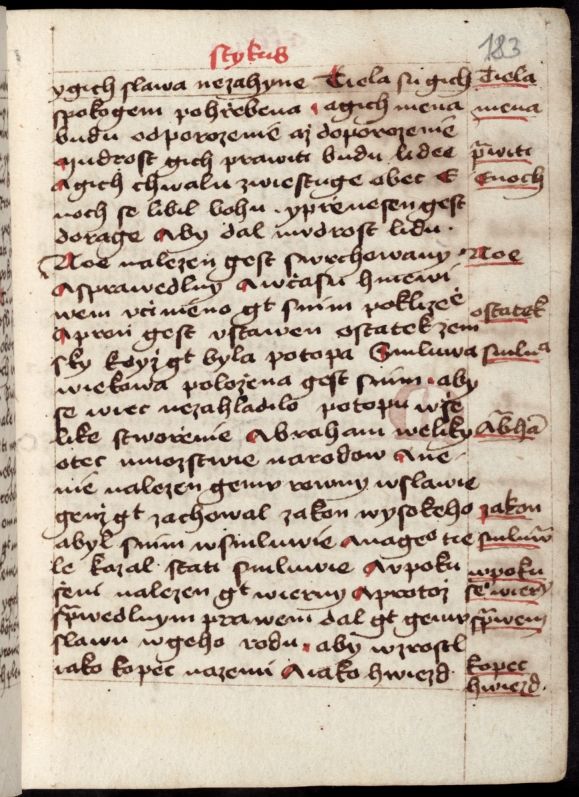 stykus
183
ygich slawa nezahyne Tiela su gich
spokogem pohrzebena . agich mena
budu od porozenie az doporozenie
mudrost gich prawiti budu lidee
Agich chwalu zwiestuge obec E
noch se libil bohu . yprenesen gest
dorage Aby dal mudrost lidu .
Noe nalezen gest swrchowany
Asprawedlny Awczasu hniewi
wem uczineno gt snim poklizee
Apron gest ustawen ostatek zem
sky kdyz gt byla potopa Smluwa
wiekowa polozena gest snim . aby
se wiec nezahladilo potopu wsse
like stworzenie Abraham weliky
otec mnozstwie narodow Ane
nie nalezen gemu rowny wslawie
genz gt zachowal zakon wysokeho
abyl snim wsmluwie Anageo tie
le kazal stati smluwie Awpoku
sseni nalezen gt wierny Aprotoz
sprwedlnym prawem dal gt gemu
slawu wgeho rodu . aby wzrostl
iako kopec nazemi Aiako hwiezd
Tiela
mena
prwiti
Enoch
Noe
ostatek
smluwa
Abrha
zakon
smluw
wpoku
sse wierny
sprwem
kopec
hwiezd .